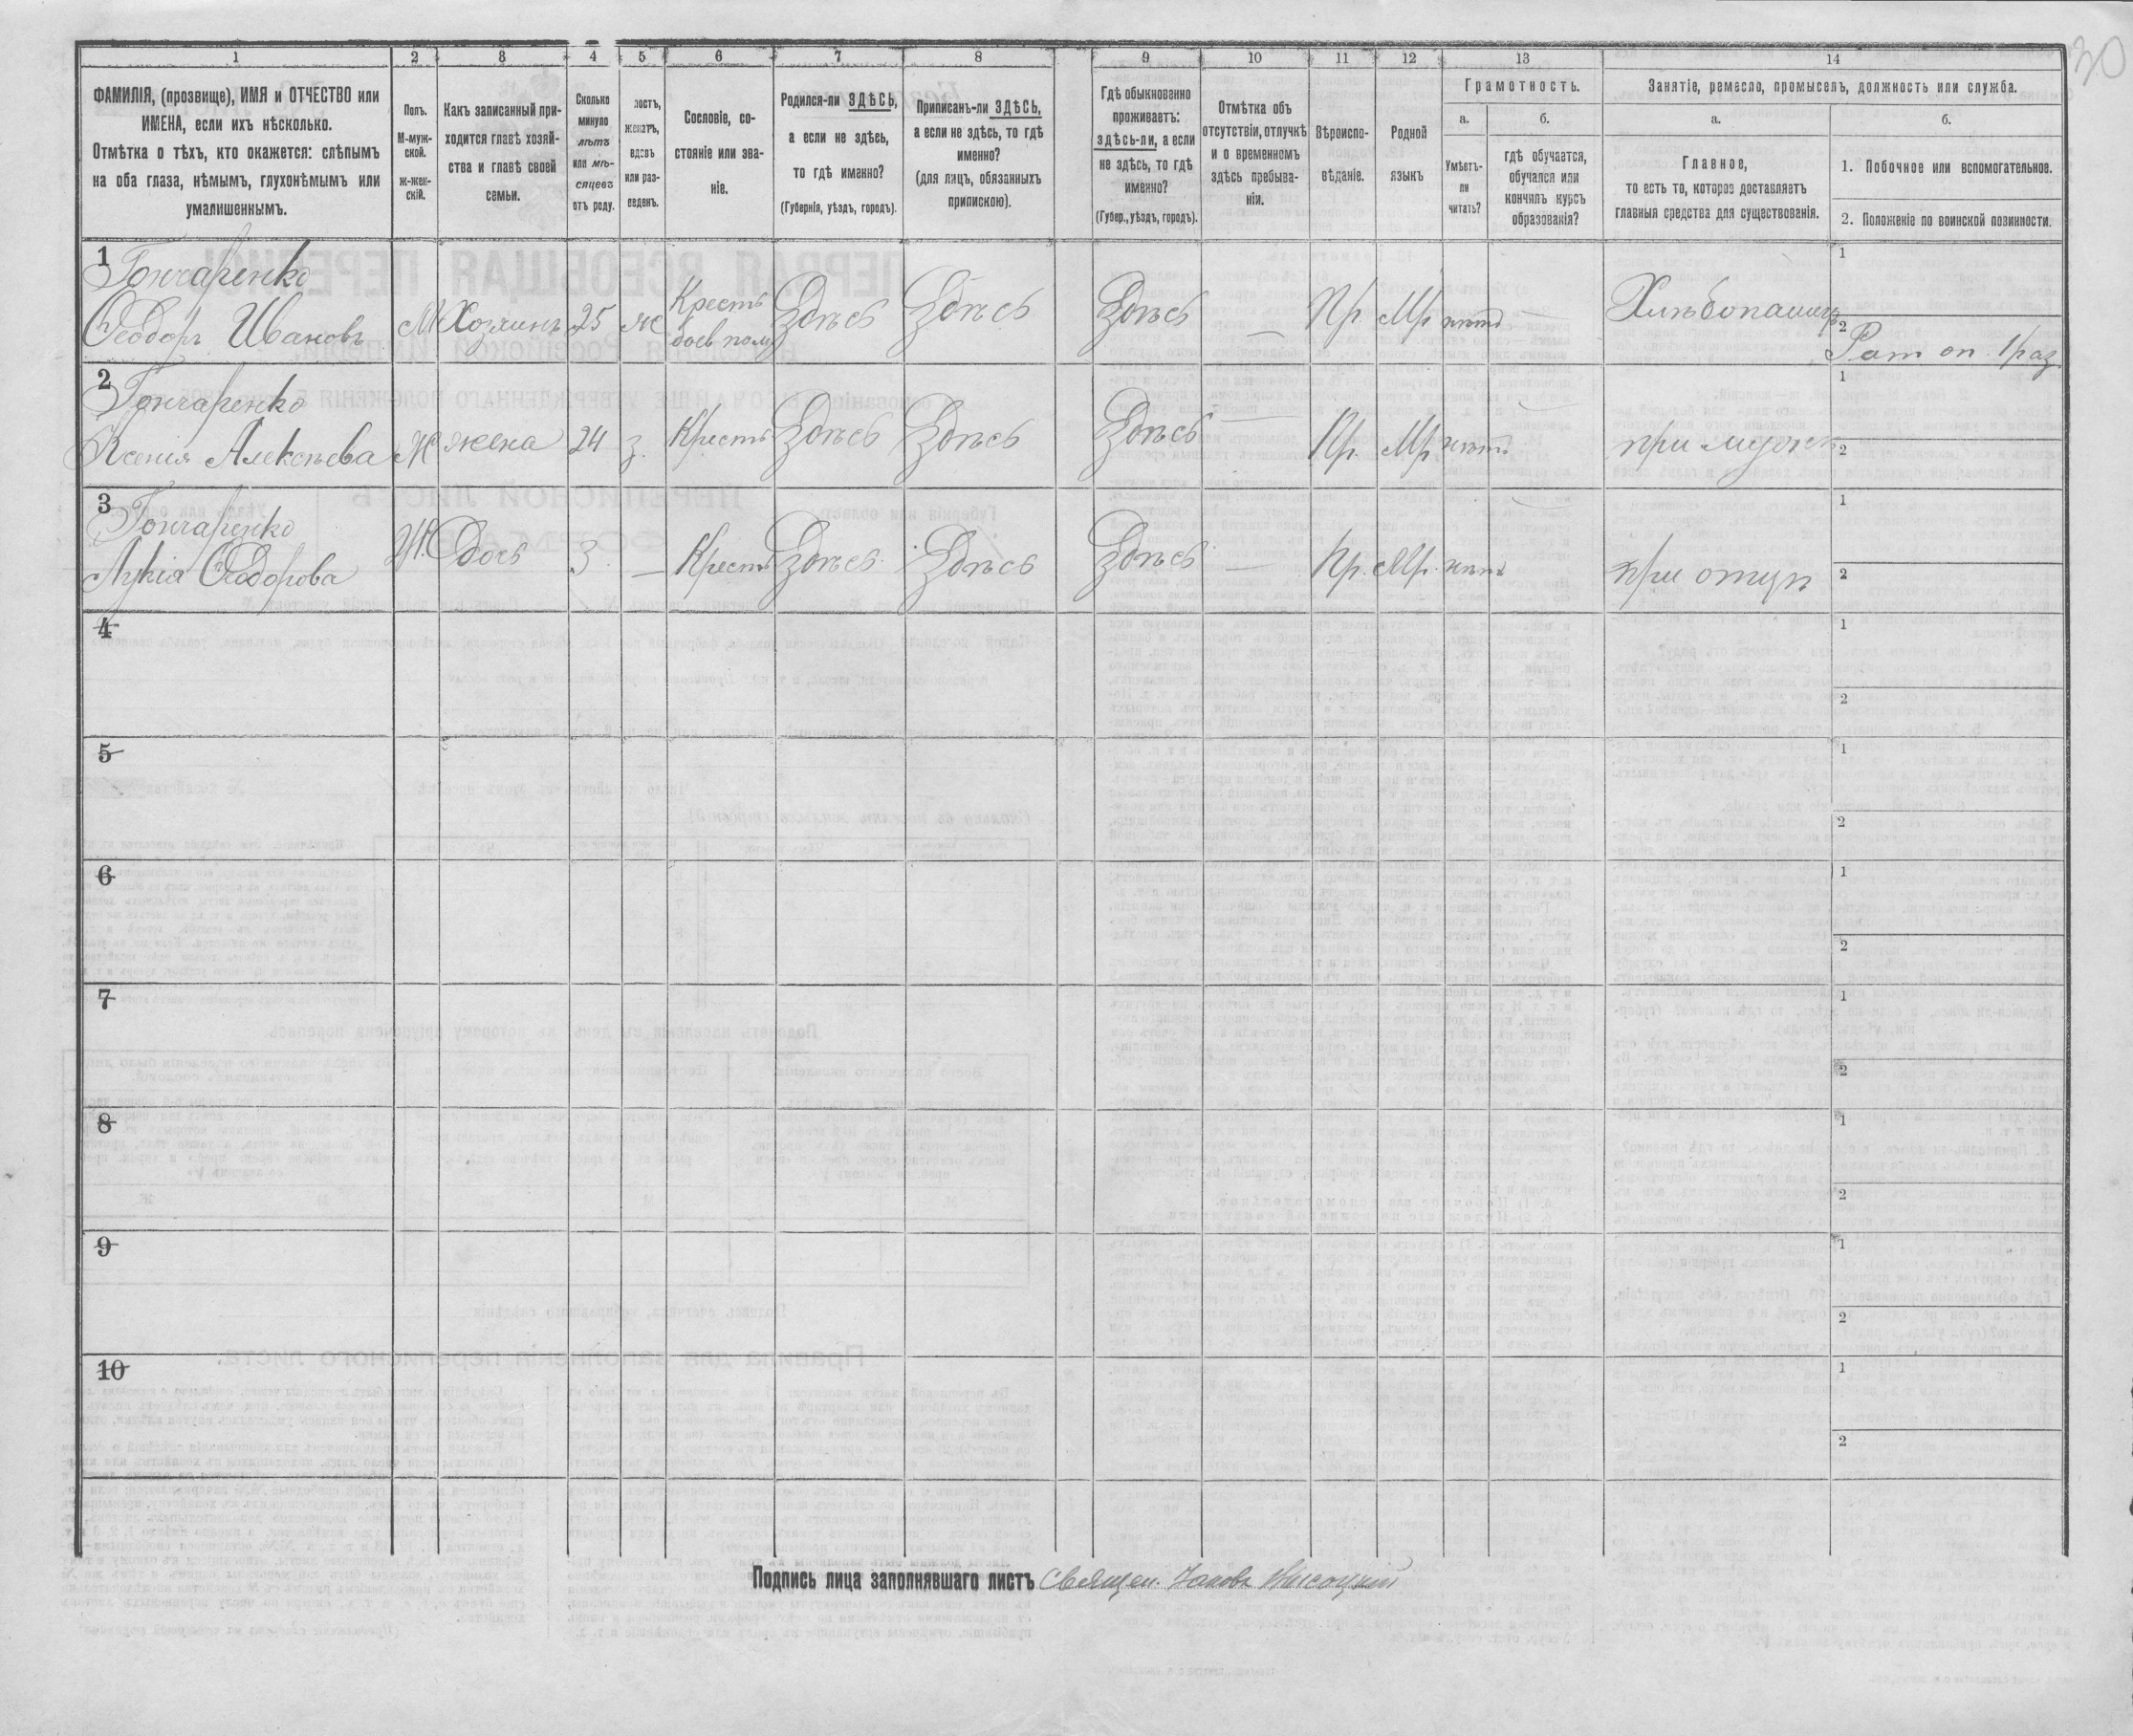 30
1 2 3 4 5 6 7 8 9 10 11 12 13 14
ФАМИЛІЯ, (прозвище), ИМЯ и ОТЧЕСТВО или
ИМЕНА, если ихъ нѣсколько.
Отмѣтка о тѣхъ, кто окажется: слѣпымъ
на оба глаза, нѣмымъ, глухонѣмымъ или
умалишеннымъ.
Полъ.
М-муж-
ской.
ж-жен-
скій.
Какъ записанный при-
ходится главѣ хозяй-
ства и главѣ своей
семьи.
Сколько
минуло
лѣтъ
или мѣ-
сяцевъ
отъ роду.
лостъ,
женатъ,
вдовъ
или раз-
веденъ.
Сословіе, со-
стояніе или зва-
ніе.
Родился-ли ЗДѢСЬ,
а если не здѣсь,
то гдѣ именно?
(Губернія, уѣздъ, городъ).
Приписанъ-ли ЗДѢСЬ,
а если не здѣсь, то гдѣ
именно?
(для лицъ, обязанныхъ
припискою).
Гдѣ обыкновенно
проживаетъ:
здѣсь-ли, а если
не здѣсь, то гдѣ
именно?
(Губер., уѣздъ, городъ).
Отмѣтка объ
отсутствіи, отлучкѣ
и о временномъ
здѣсь пребыва-
ніи.
Вѣроиспо-
вѣданіе.
Родной
языкъ
Грамотность.
а.
Умѣетъ-
ли
читать?
б.
гдѣ обучается,
обучался или
кончилъ курсъ
образованія?
Занятіе, ремесло, промыселъ, должность или служба.
а.
Главное,
то есть то, которое доставляетъ
главныя средства для существованія.
б.
1. Побочное или вспомогательное.
2. Положеніе по воинской повинности.
1 Гончаренко
Ѳеодоръ Ивановъ М Хозяинъ 25 ж Крестъ Здѣсь Здѣсь Здѣсь — Пр. Мр нѣтъ — Хлѣбопашецъ
1
2 Рат оп. 1 раз.
2 Гончаренко
Ксенія Алексѣева Ж жена 24 з. Крестъ Здѣсь Здѣсь Здѣсь — Пр. Мр нѣтъ — при мужѣ
1
2
3 Гончаренко
Лукія Ѳеодорова Ж. Дочь 3 — Крестъ Здѣсь Здѣсь Здѣсь — Пр. Мр. нѣтъ — при отцѣ
1
2
4
1
2
5
1
2
6
1
2
7
1
2
8
1
2
9
1
2
10
1
2
Подпись лица заполнявшаго листъ Священ. Іаковъ Высоцкій